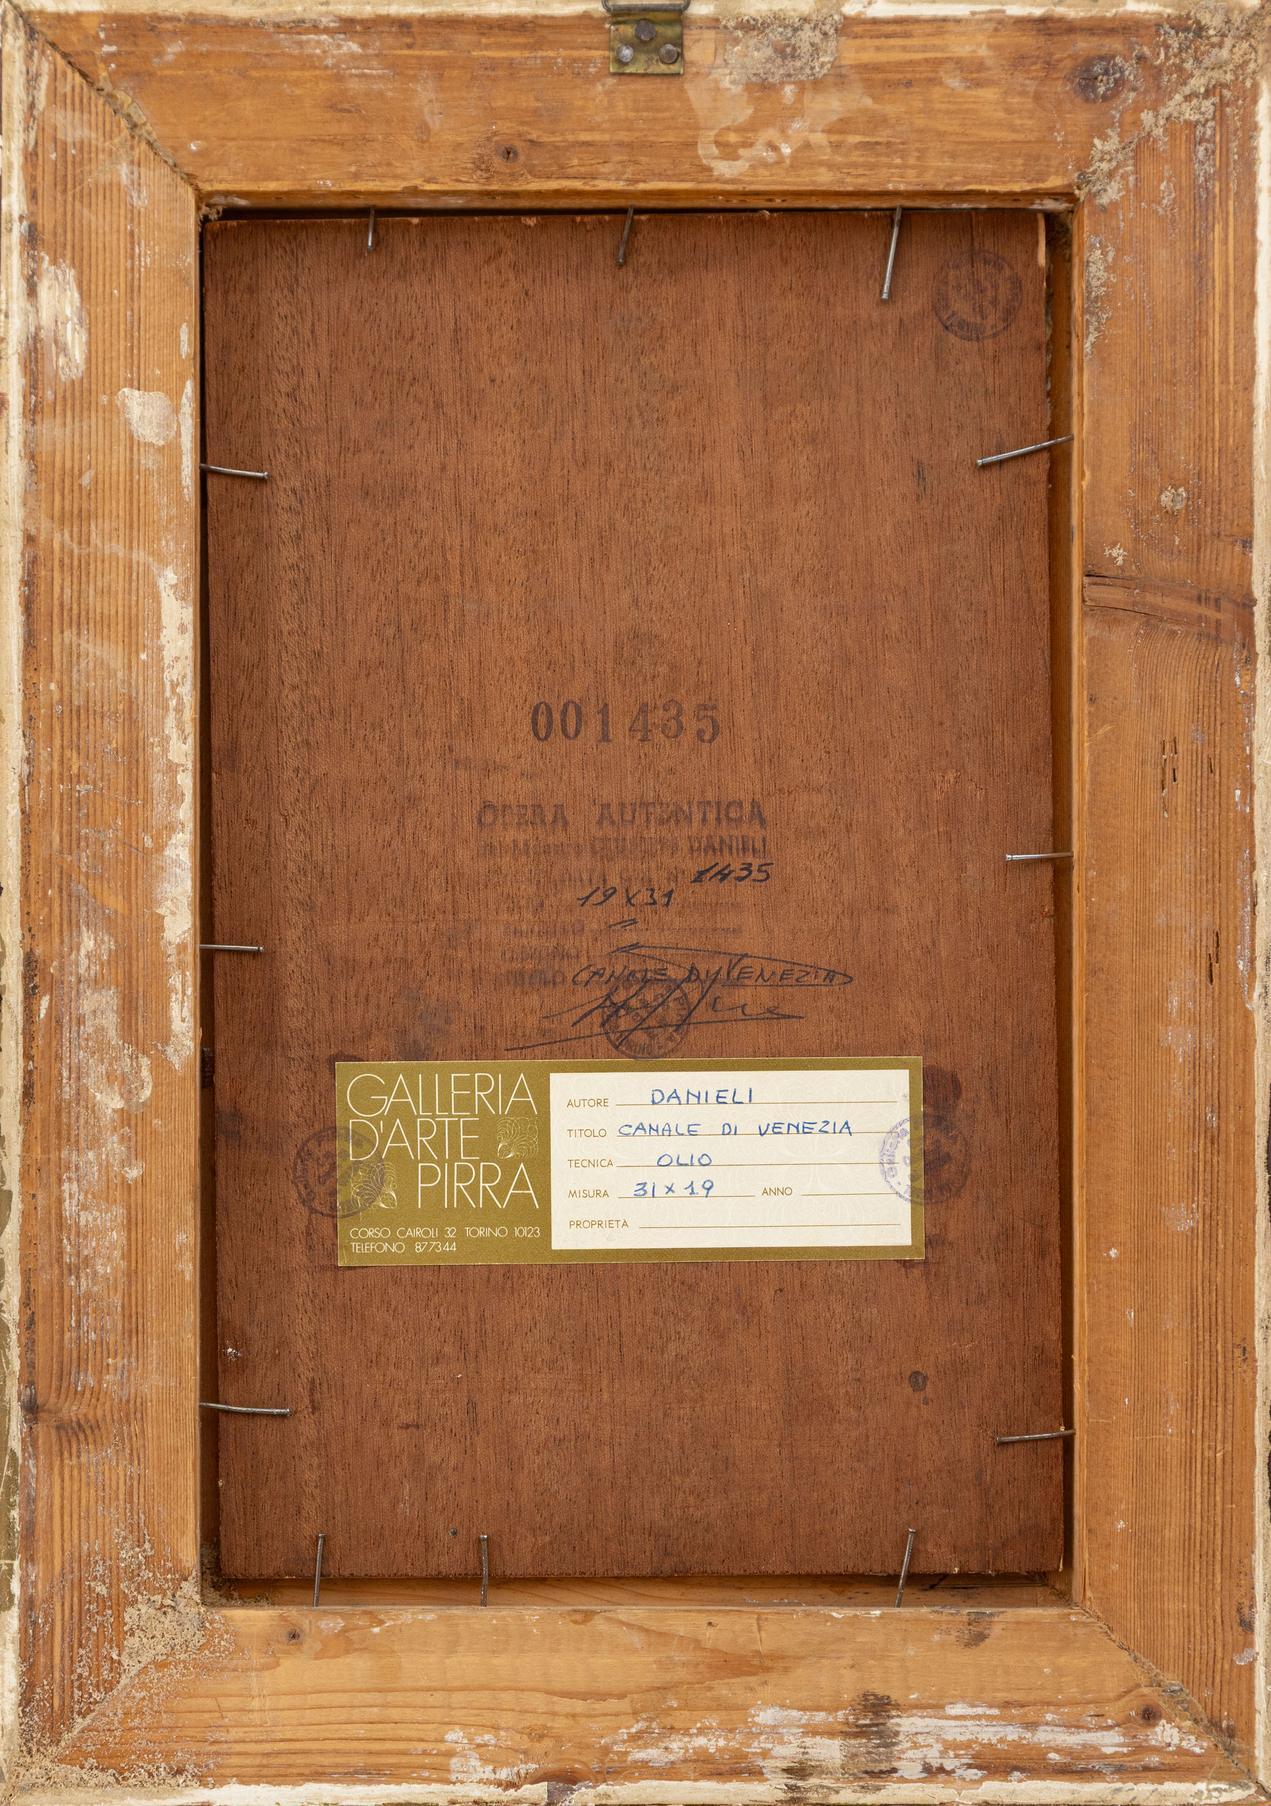 001435
OPERA AUTENTICA
DANIELI
1435
19 x 31
"
CANALE DI VENEZIA
GALLERIA
D'ARTE
PIRRA
CORSO CAIROLI 32 TORINO 10123
TELEFONO 877344
AUTORE DANIELI
TITOLO CANALE DI VENEZIA
TECNICA OLIO
MISURA 31 x 19 ANNO
PROPRIETÀ